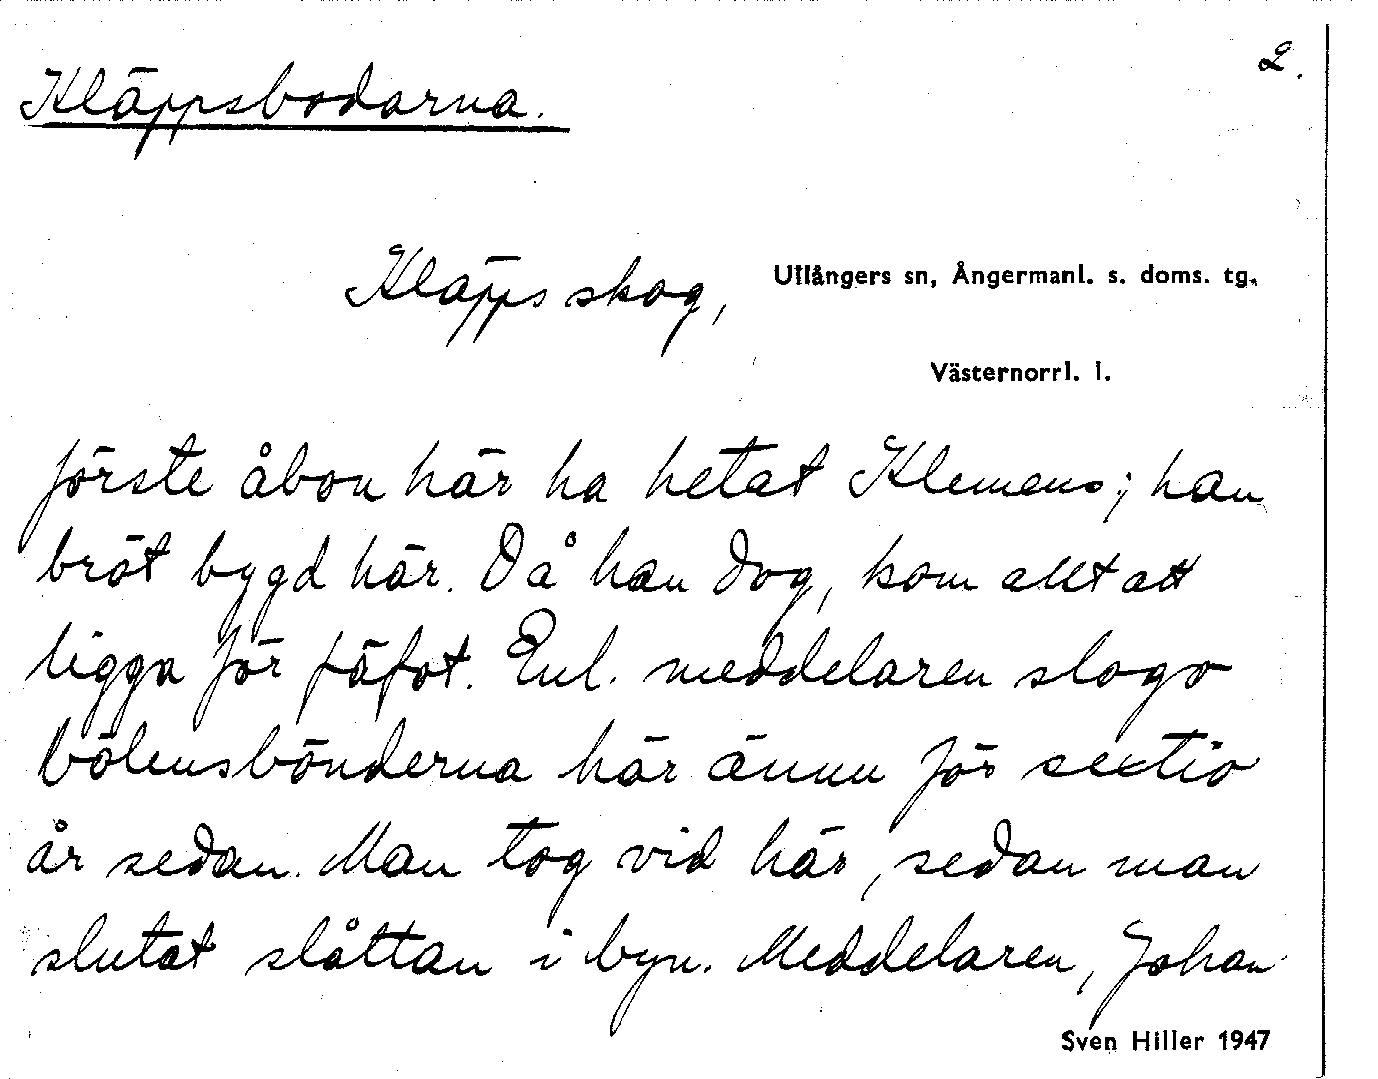 2.
Kläppsbodarna.
Kläppsskog, Ullångers sn, Ångermanl. s. doms. tg.
Västernorrl. l.
förste åbon här ha hetat Klemens; han
bröt bygd här. Då han dog, kom allt att
ligga för fäfot. Enl. meddelaren slogo
bölensbönderna här ännu för sextio
år sedan. Man tog vid här, sedan man
slutat slåttan i byn. Meddelaren, Johan
Sven Hiller 1947